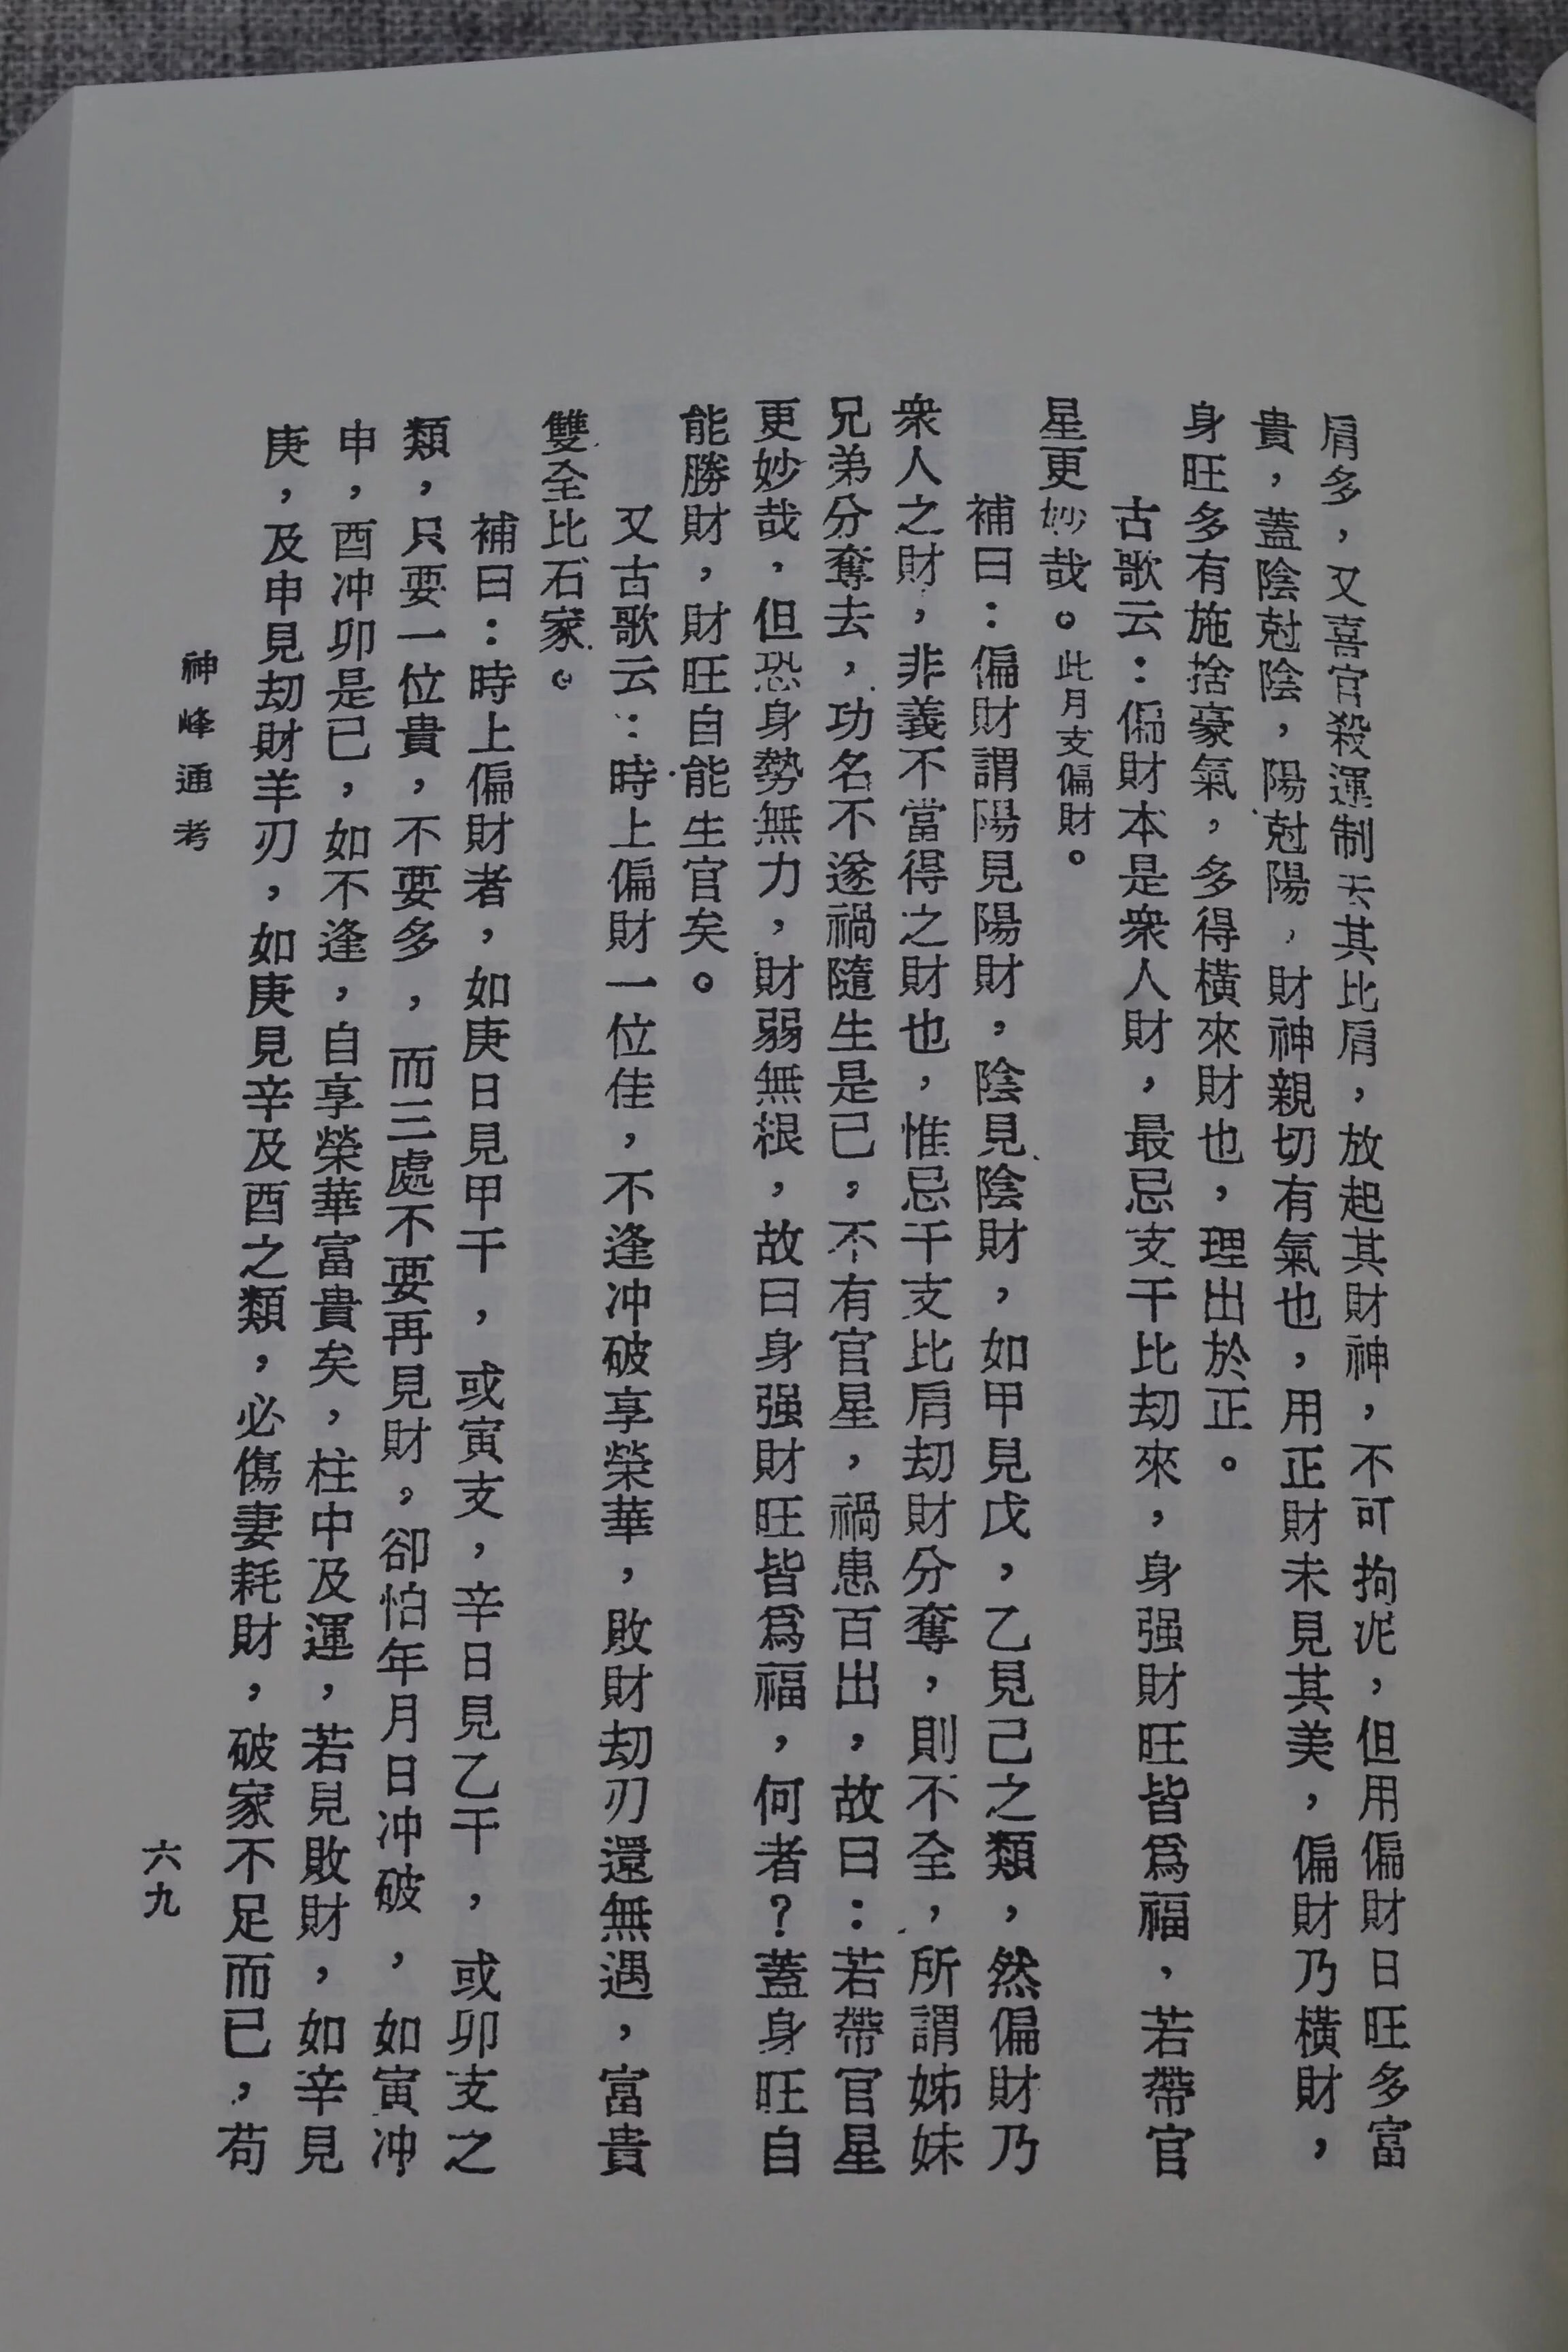 肩多，又喜官殺運制去其比肩，放起其財神，不可拘泥，但用偏財日旺多富
貴，蓋陰尅陰，陽尅陽，財神親切有氣也，用正財未見其美，偏財乃橫財，
身旺多有施捨豪氣，多得橫來財也，理出於正。
古歌云：偏財本是衆人財，最忌支干比刧來，身强財旺皆爲福，若帶官
星更妙哉。此月支偏財。
補曰：偏財謂陽見陽財，陰見陰財，如甲見戊，乙見己之類，然偏財乃
衆人之財，非義不當得之財也，惟忌干支比肩刧財分奪，則不全，所謂姊妹
兄弟分奪去，功名不遂禍隨生是已，不有官星，禍患百出，故曰：若帶官星
更妙哉，但恐身勢無力，財弱無根，故曰身强財旺皆爲福，何者？蓋身旺自
能勝財，財旺自能生官矣。
又古歌云：時上偏財一位佳，不逢冲破享榮華，敗財刧刃還無遇，富貴
雙全比石家。
補曰：時上偏財者，如庚日見甲干，或寅支，辛日見乙干，或卯支之
類，只要一位貴，不要多，而三處不要再見財。卻怕年月日冲破，如寅冲
申，酉冲卯是已，如不逢，自享榮華富貴矣，柱中及運，若見敗財，如辛見
庚，及申見刧財羊刃，如庚見辛及酉之類，必傷妻耗財，破家不足而已，苟
神峰通考
六九